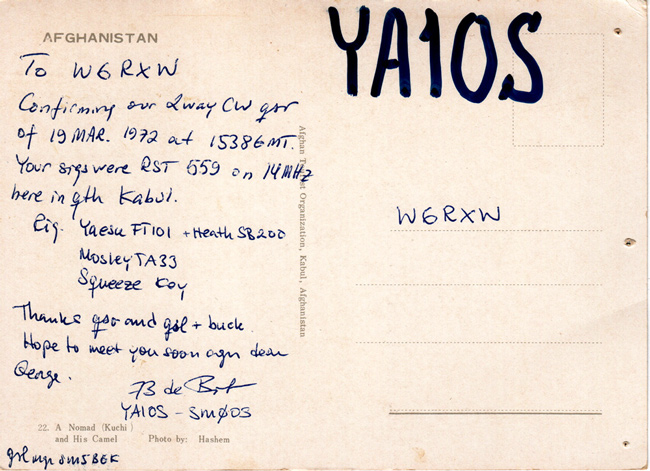 AFGHANISTAN
YA1OS
To W6RXW
Confirming our 2way CW qso
of 19 MAR. 1972 at 1538GMT.
Your sigs were RST 559 on 14MHz
here in qth Kabul.
Rig. Yaesu FT101 + Heath SB200
Mosley TA33
Squeeze Key
Thanks qso and qsl + buck.
Hope to meet you soon agn dear
George.
73 de
YA1OS - SMØOS
22. A Nomad (Kuchi)
and His Camel Photo by: Hashem
qsl mgr SM5BEK
Afghan Tourist Organization, Kabul, Afghanistan
W6RXW